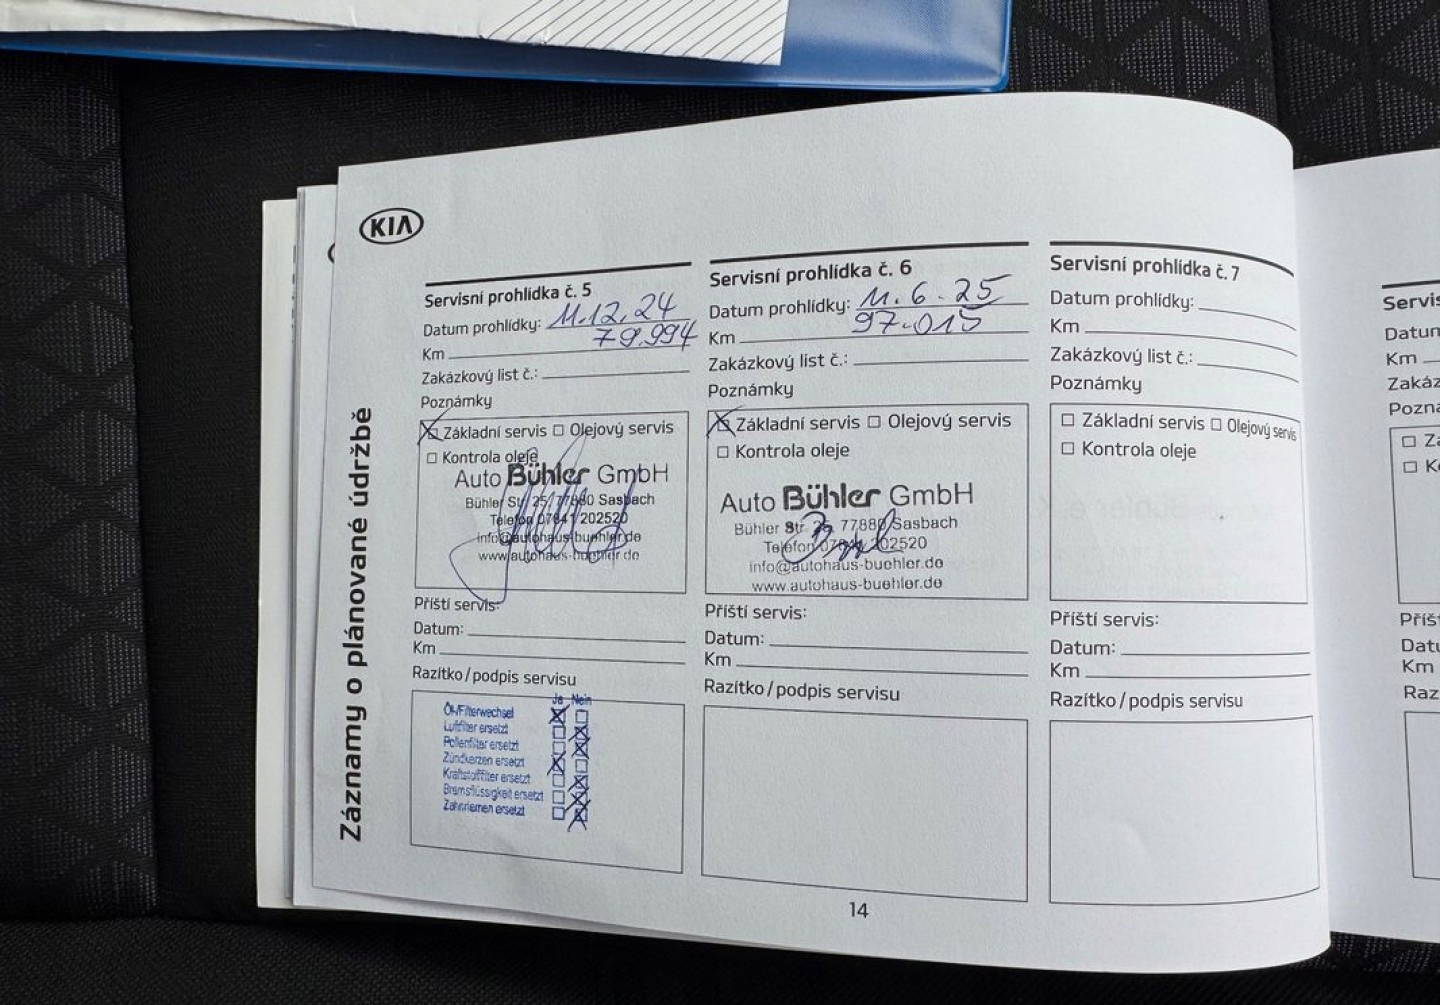 KIA
Záznamy o plánované údržbě
Servisní prohlídka č. 5
Datum prohlídky: 11.12.24
79.994
Km
Zakázkový list č.:
Poznámky
Základní servis Olejový servis
Kontrola oleje
Auto Bühler GmbH
Bühler Str. 25, 77880 Sasbach
Telefon 07841 202520
info@autohaus-buehler.de
www.autohaus-buehler.de
Příští servis:
Datum:
Km
Razítko/podpis servisu
Ja Nein
Öl-/Filterwechsel
Luftfilter ersetzt
Pollenfilter ersetzt
Zündkerzen ersetzt
Kraftstofffilter ersetzt
Bremsflüssigkeit ersetzt
Zahnriemen ersetzt
Servisní prohlídka č. 6
Datum prohlídky: 11.6.25
97.015
Km
Zakázkový list č.:
Poznámky
Základní servis Olejový servis
Kontrola oleje
Auto Bühler GmbH
Bühler Str. 25, 77880 Sasbach
Telefon 07841 202520
info@autohaus-buehler.de
www.autohaus-buehler.de
Příští servis:
Datum:
Km
Razítko/podpis servisu
Servisní prohlídka č. 7
Datum prohlídky:
Km
Zakázkový list č.:
Poznámky
Základní servis Olejový servis
Kontrola oleje
Příští servis:
Datum:
Km
Razítko/podpis servisu
14
Servis
Datum
Km
Zakáz
Pozná
Zá
Ko
Příšt
Datu
Km
Raz